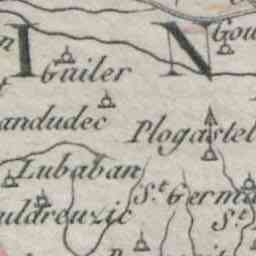 I N
Guiler
andudec
Plogastel
Lubaban
St Germa
uldreuzic
St